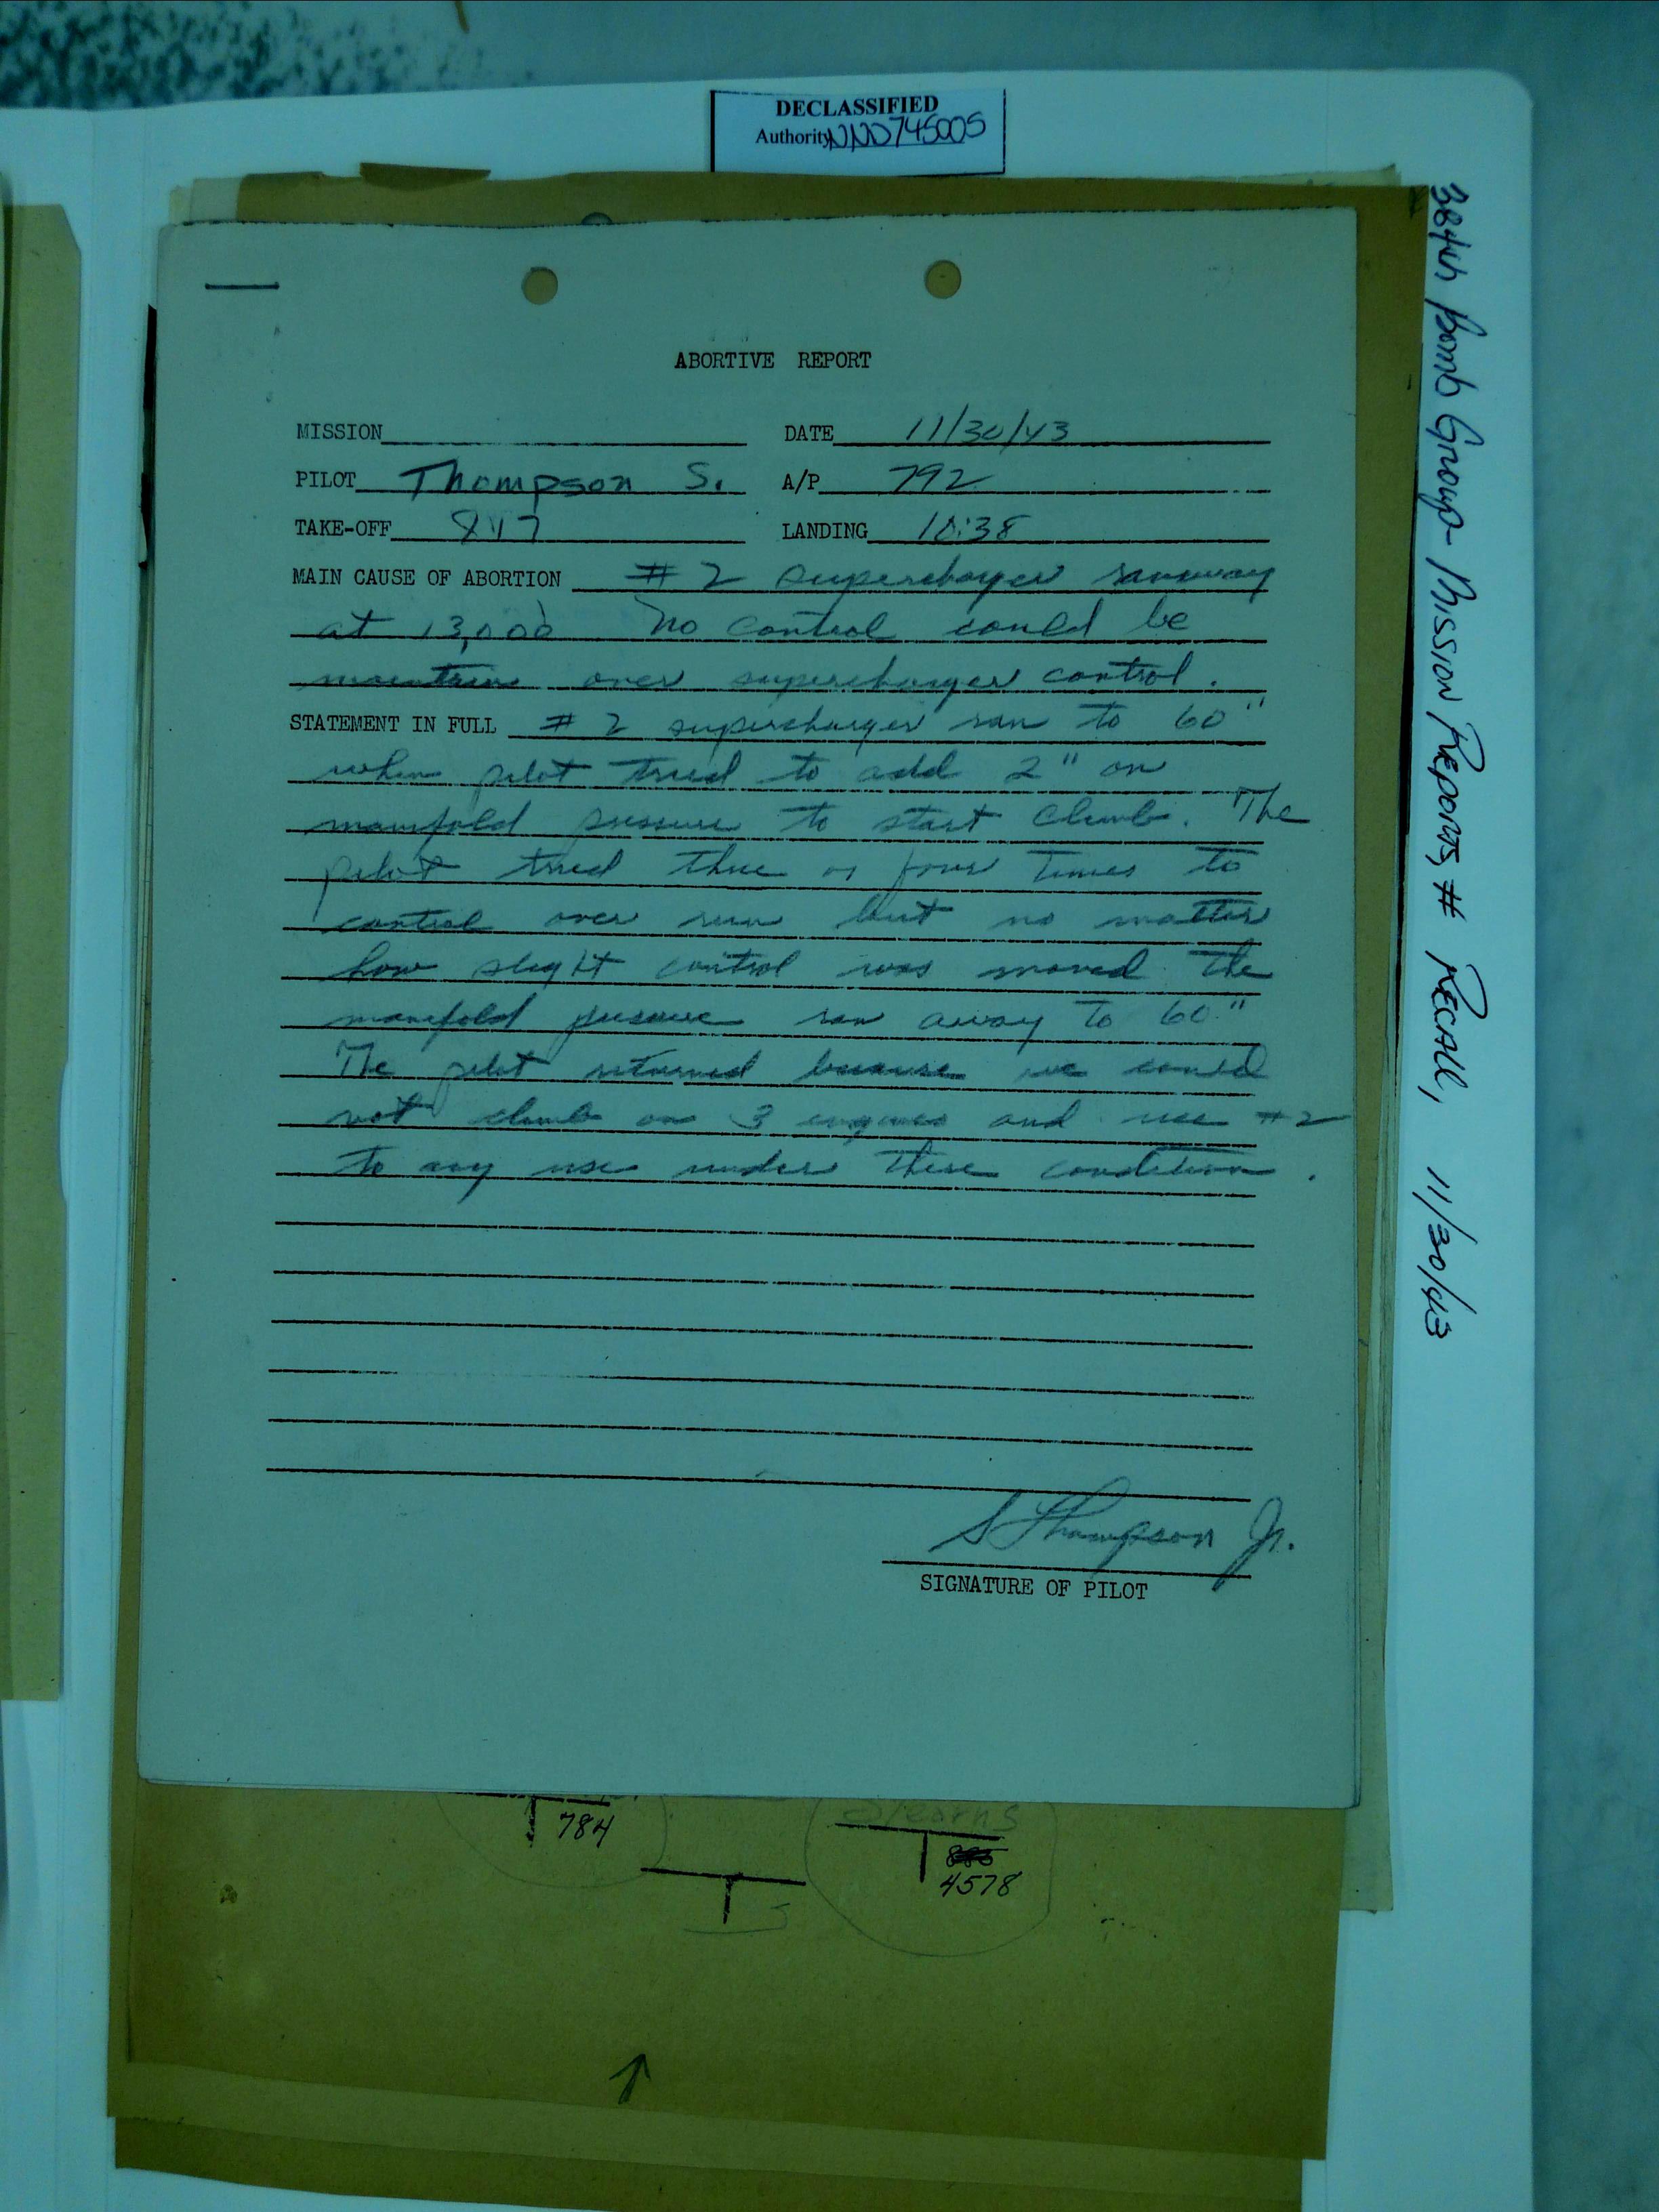 DECLASSIFIED
Authority NND745005
384th Bomb Group - Mission Reports, # Recall, 11/30/43
ABORTIVE REPORT
MISSION DATE 11/30/43
PILOT Thompson S. A/P 792
TAKE-OFF 817 LANDING 10:38
MAIN CAUSE OF ABORTION #2 supercharger runaway
at 13,000 No control could be
maintain over supercharger control.
STATEMENT IN FULL #2 supercharger ran to 60"
when pilot tried to add 2" on
manifold pressure to start climb. The
pilot tried three or four times to
control over run but no matter
how slight control was moved the
manifold pressure ran away to 60."
The pilot returned because we could
not climb on 3 engines and use #2
to any use under these condition.
S Thompson Jr.
SIGNATURE OF PILOT
784
Stearns
4578